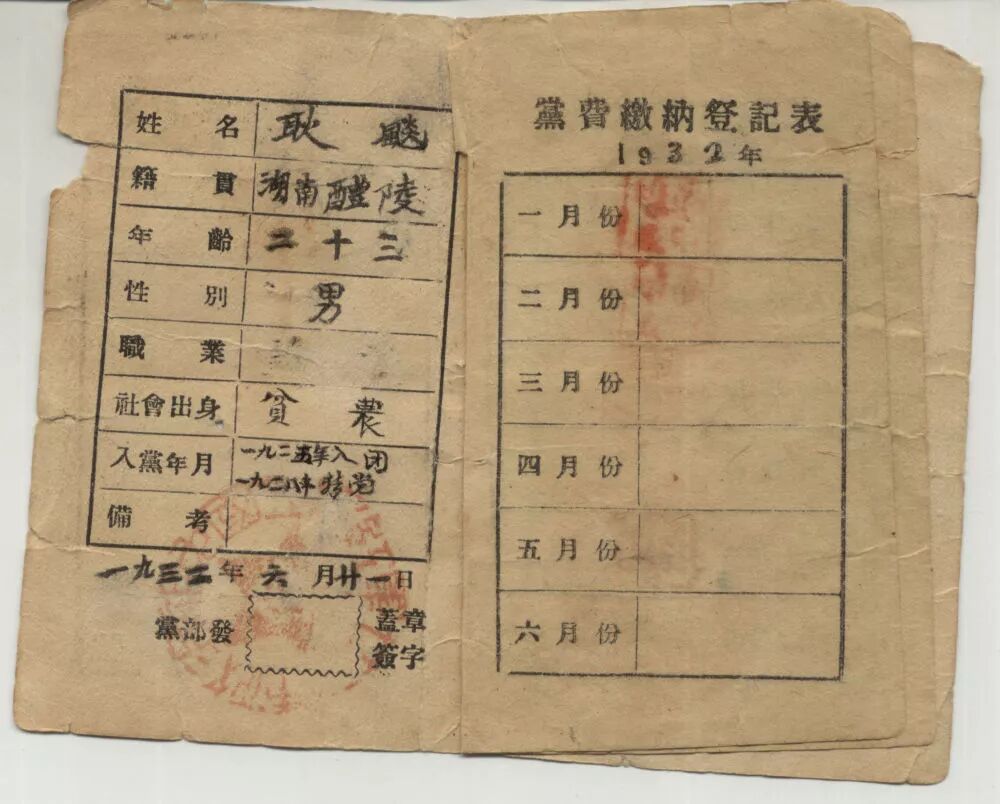 姓名 耿飈
籍貫 湖南醴陵
年齡 二十三
性別 男
職業
社會出身 貧農
入黨年月 一九二五年入团
一九二八年转党
備考
一九三二年六月廿一日
黨部發
蓋章
簽字
黨費繳納登記表
1932年
一月份
二月份
三月份
四月份
五月份
六月份